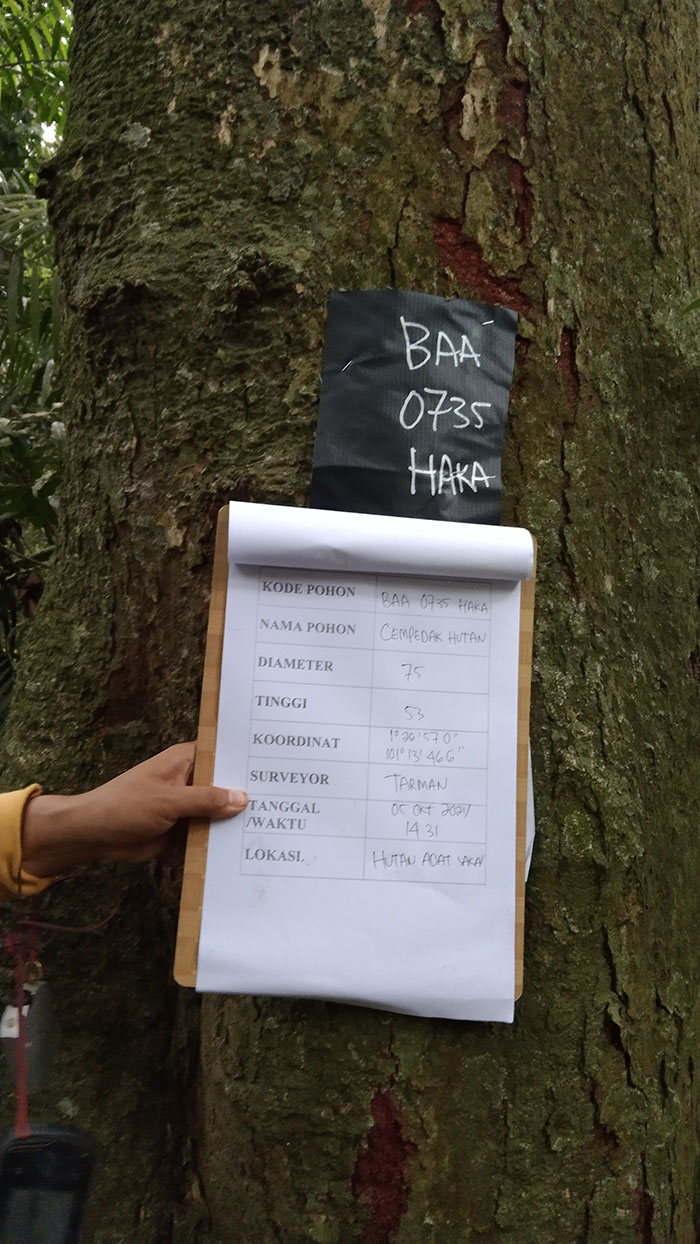 BAA
0735
HAKA
KODE POHON BAA 0735 HAKA
NAMA POHON CEMPEDAK HUTAN
DIAMETER 75
TINGGI 53
KOORDINAT 1°26'57.0"
101°13'46.6"
SURVEYOR TARMAN
TANGGAL /WAKTU 05 OKT 2021/
14.31
LOKASI HUTAN ADAT SAKAI